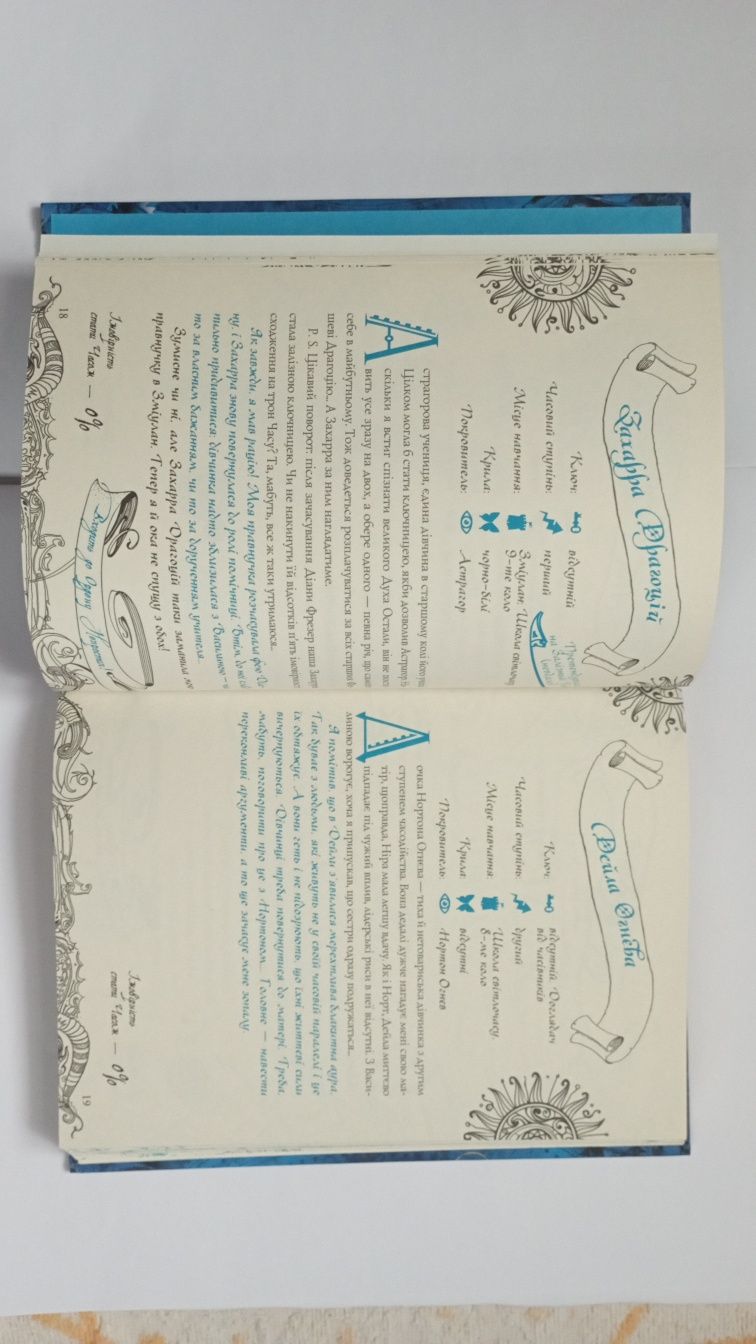 Захарра Драгоцій
Ключ: відсутній
Часовий ступінь: перший
Місце навчання: Зміулан. Школа світлочасу,
9-те коло
Крила: чорно-білі
Покровитель: Астрагор
Астрагорова учениця, єдина дівчина в старшому колі його
Цілком могла б стати ключницею, якби дозволив Астрагор.
скільки я встиг спізнати великого Духа Остали, він не
вить усе зразу на двох, а обере одного — певна річ, що
себе в майбутньому. Тож доведеться розплачуватися за всіх старшій
шеві Драгоцію... А Захарра за ним наглядатиме.
P. S. Цікавий поворот: після зачасування Діани Фрезер наша
стала залізною ключницею. Чи не накинути їй відсотків п'ять
сходження на трон Часу? Та, мабуть, все ж таки утримаюся...
Як завжди, я мав рацію! Моя правнучка розчасувала фею
ну, і Захарра знову повернулася до ролі помічниці. Втім, до неї
пильно придивитися: дівчинка надто зблизилася з Василиною —
то за власним бажанням, чи то за дорученням учителя.
Зумисне чи ні, але Захарра Драгоцій таки заманила
правнучку в Зміулан. Тепер я й ока не спущу з обох!
Ймовірність
стати Часом — 0%
18
Дейла Огнєва
Ключ: відсутній. Доглядач
від часівників
Часовий ступінь: другий
Місце навчання: Школа світлочасу,
8-ме коло
Крила: відсутні
Покровитель: Нортон Огнєв
Дочка Нортона Огнєва — тиха й нетовариська дівчинка з другим
ступенем часодійства. Вона дедалі дужче нагадує мені свою ма-
тір, щоправда, Ніра мала легшу вдачу. Як і Норт, Дейла миттєво
підпадає під чужий вплив, лідерські риси в неї відсутні. З Васи-
линою ворогує, хоча я припускав, що сестри одразу подружаться...
Я помітив, що в Дейли з'явилася мерехтлива блакитна аура.
Так буває з людьми, які живуть не у своїй часовій паралелі і це
їх обтяжує. А вони геть і не підозрюють, що їхні життєві сили
вичерпуються. Дівчинці треба повернутися до матері. Треба,
мабуть, поговорити про це з Нортоном... Головне — навести
переконливі аргументи, а то ще зачасує мене зопалу.
Ймовірність
стати Часом — 0%
19